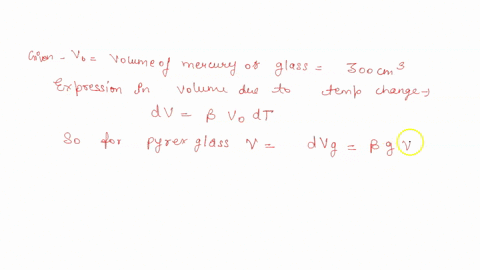 Given - V₀ = Volume of mercury or glass = 300 cm³
Expression in volume due to temp change →
dV = β V₀ dT
So for pyrex glass V = dVg = β g V